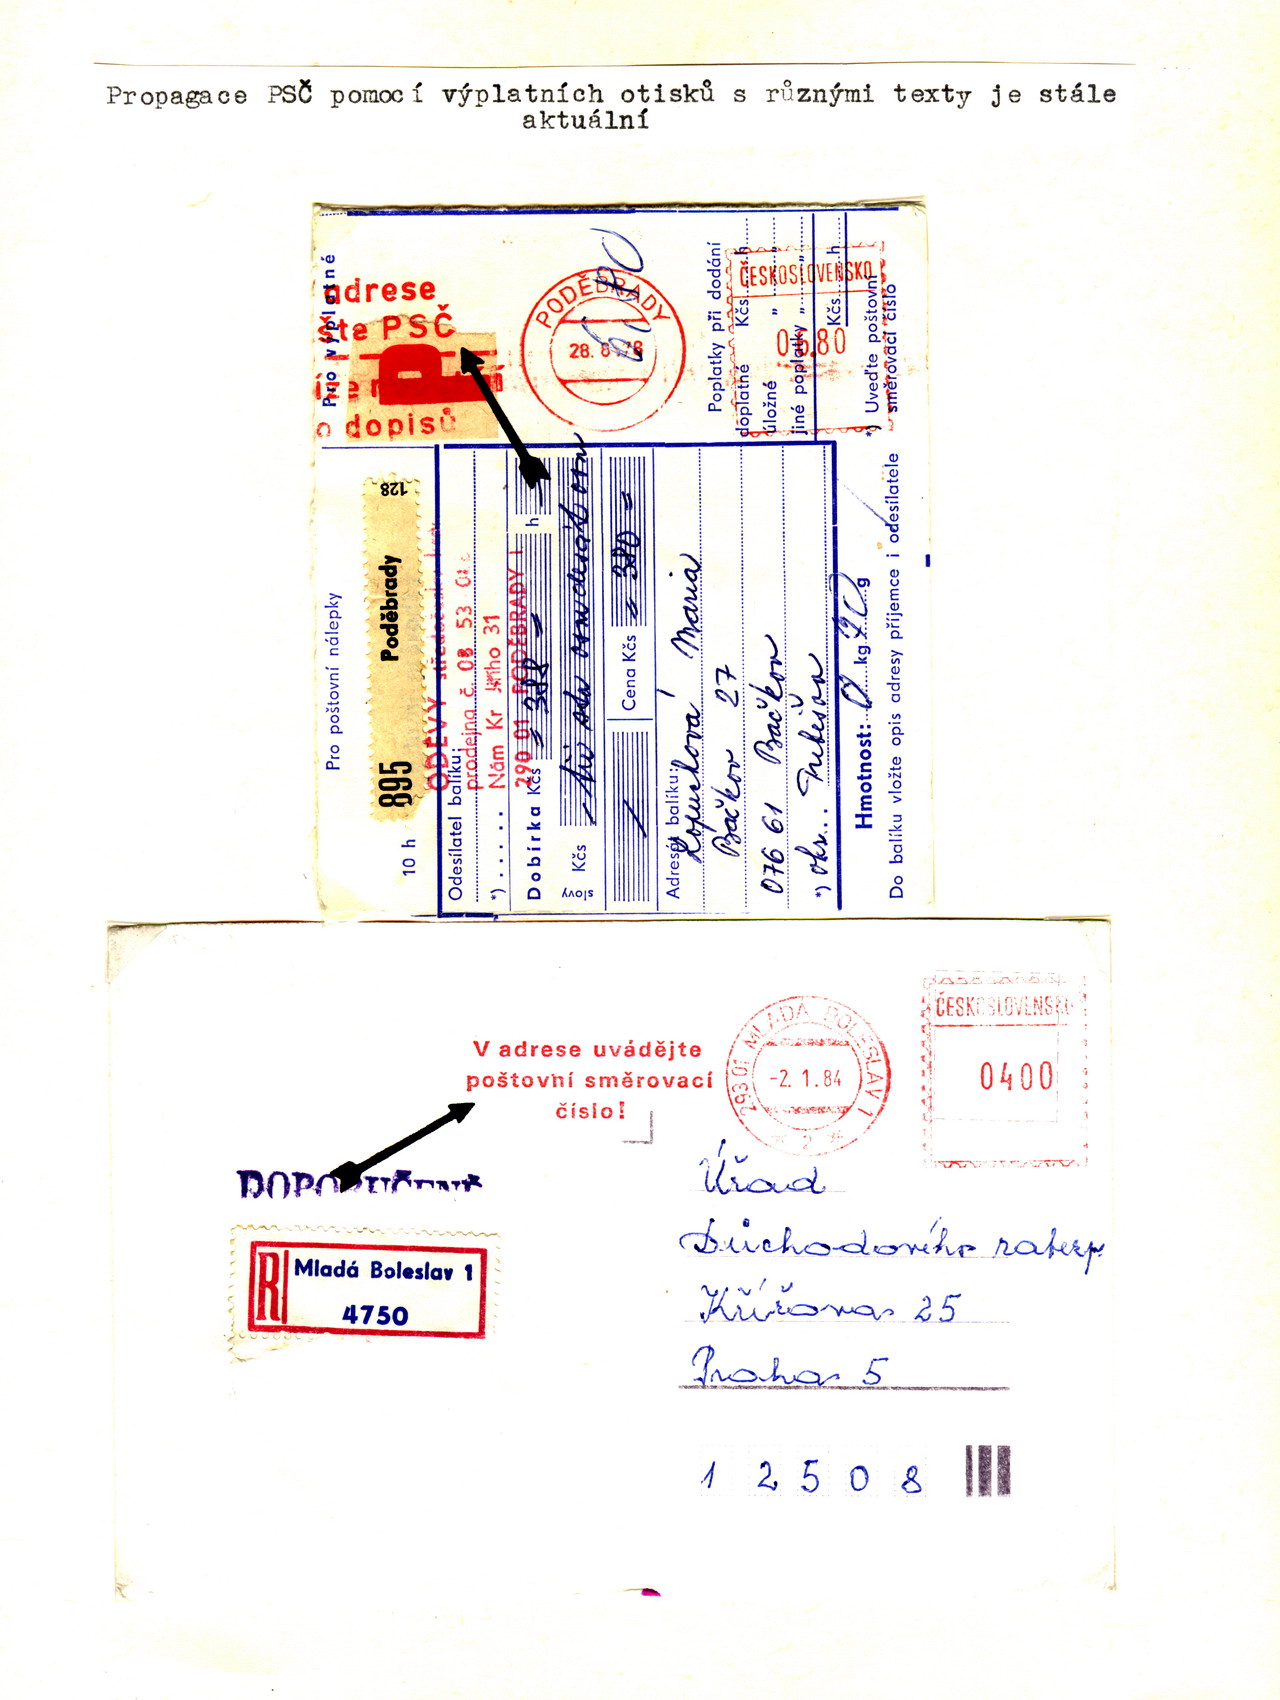 Propagace PSČ pomocí výplatních otisků s různými texty je stále
aktuální
Pro výplatné
adrese
PSČ
P
o dopisů
PODĚBRADY
28. 8 78
ČESKOSLOVENSKO
06.80
Poplatky při dodání
doplatné Kčs h
úložné " "
jiné poplatky " "
Kčs h
*) Uveďte poštovní
směrovací číslo
Pro poštovní nálepky
128
Poděbrady
895
10 h
Odesílatel balíku:
ODĚVY
prodejna č. 08 53 01
Nám Kr Jiřího 31
290 01 PODĚBRADY 1
*)
Dobírka Kčs = 388 = h
slovy Kčs
Cena Kčs = 380 =
Adresát balíku:
Maria
Bačkov 27
076 61 Bačkov
*) okr. Trebišov
Hmotnost: kg g
Do balíku vložte opis adresy příjemce i odesílatele
V adrese uvádějte
poštovní směrovací
číslo!
293 01 MLADÁ BOLESLAV 1
-2. 1. 84
* 2 *
ČESKOSLOVENSKO
0400
DOPORUČENĚ
R Mladá Boleslav 1
4750
Úřad
Důchodového zabezp.
Křížova 25
Praha 5
1 2 5 0 8